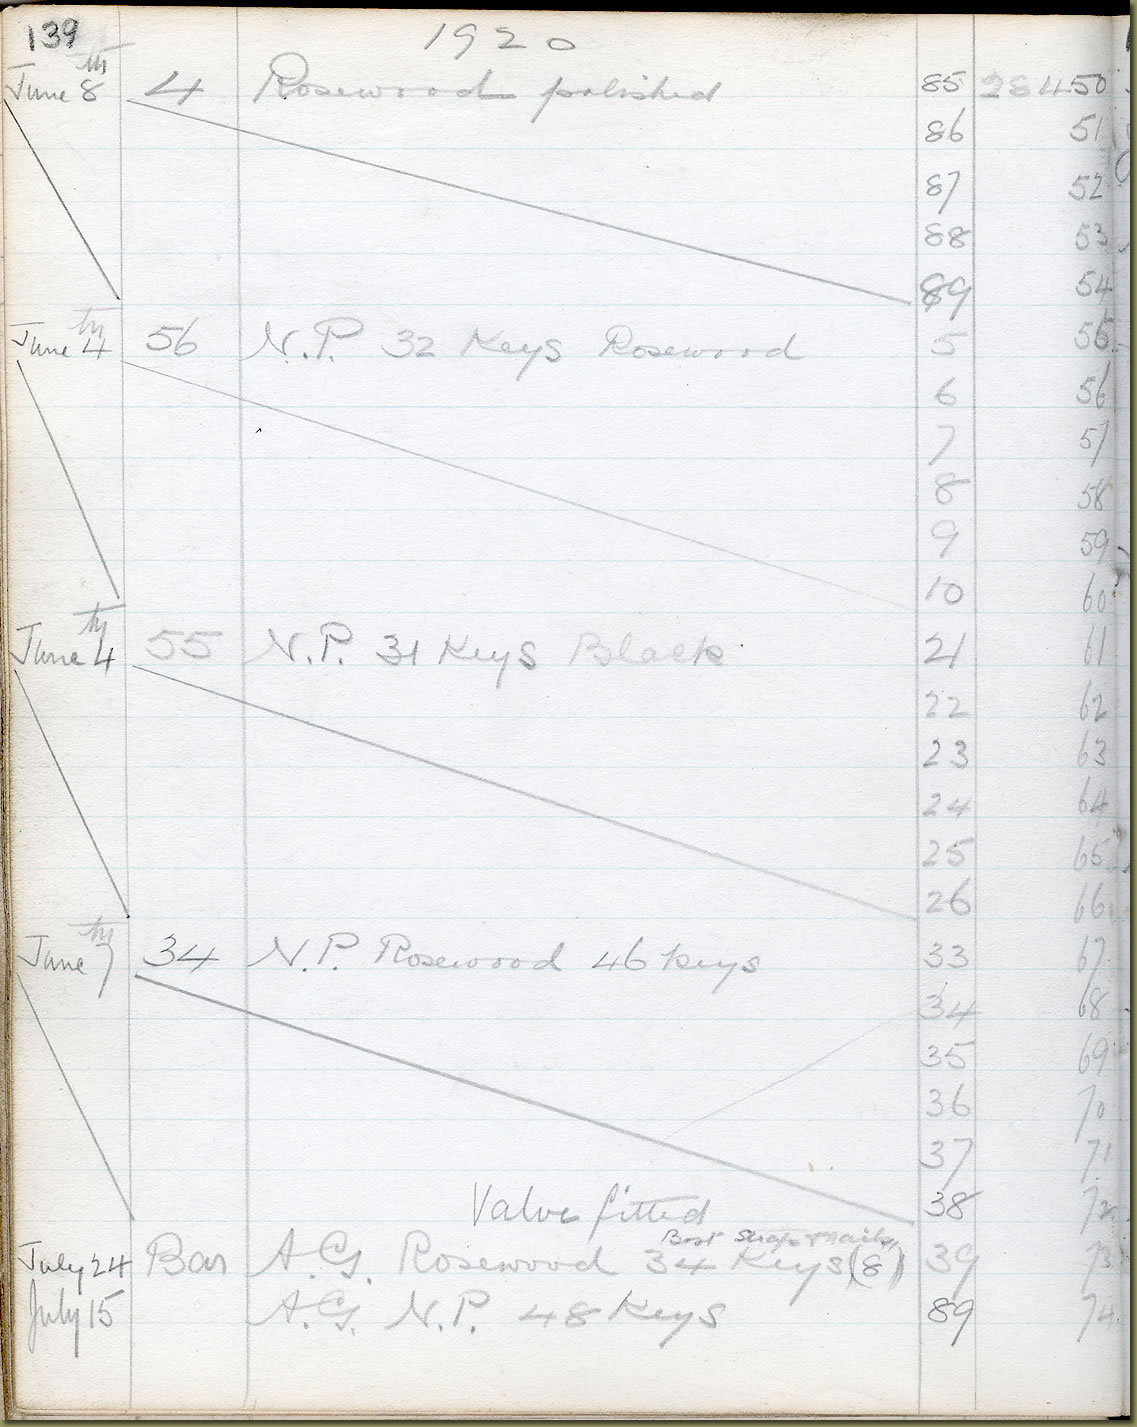 139 1920
June 8th 4 Rosewood polished 85 28450
86 51
87 52
88 53
89 54
June 4th 56 N.P. 32 Keys Rosewood 5 55
6 56
7 57
8 58
9 59
10 60
June 4th 55 N.P. 31 Keys Black 21 61
22 62
23 63
24 64
25 65
26 66
June 7th 34 N.P. Rosewood 46 Keys 33 67
34 68
35 69
36 70
37 71
Valve fitted 38 72
Best Straps
July 24 Bar A.G. Rosewood 34 Keys (8) 39 73
July 15 A.G. N.P. 48 Keys 89 74